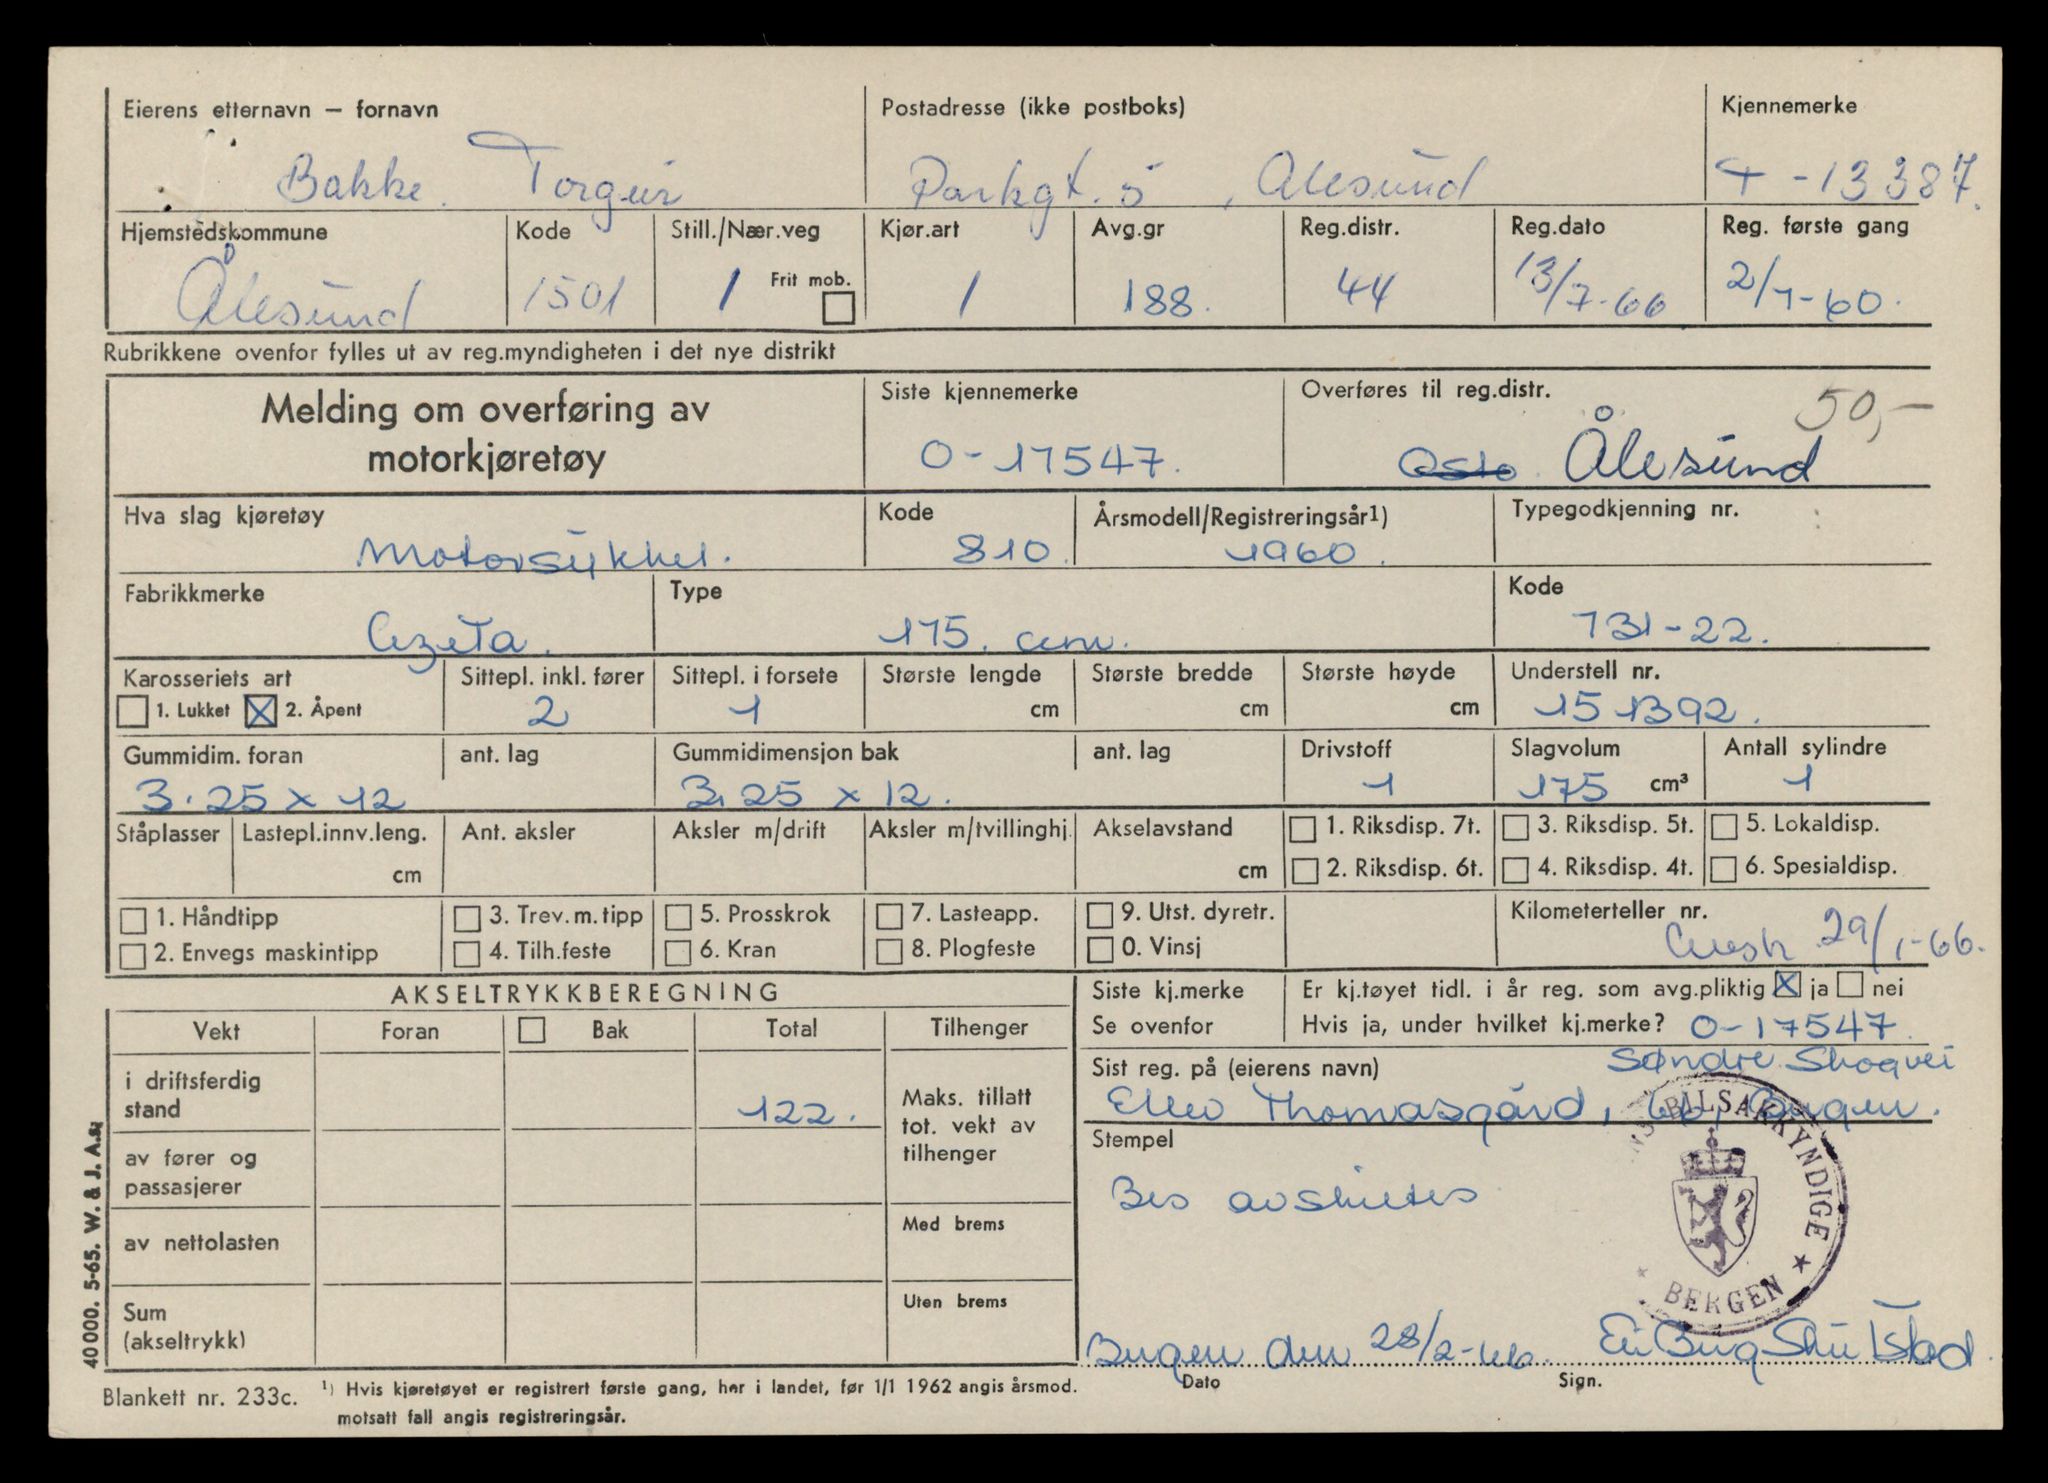 Eierens etternavn — fornavn Postadresse (ikke postboks) Kjennemerke
Bakke. Torgeir Parkgt. 5, Ålesund T-13387.
Hjemstedskommune Kode Still./Nær.veg Kjør.art Avg.gr Reg.distr. Reg.dato Reg. første gang
Ålesund 1501 1 Frit mob. 1 188. 44 13/7-66 2/7-60.
Rubrikkene ovenfor fylles ut av reg.myndigheten i det nye distrikt
Melding om overføring av
motorkjøretøy
Siste kjennemerke Overføres til reg.distr. 50,-
O-17547. Oslo Ålesund
Hva slag kjøretøy Kode Årsmodell/Registreringsår1) Typegodkjenning nr.
Motorsykkel. 810. 1960.
Fabrikkmerke Type Kode
Cezeta. 175. ccm. 731-22.
Karosseriets art Sittepl. inkl. fører Sittepl. i forsete Største lengde Største bredde Største høyde Understell nr.
1. Lukket 2. Åpent 2 1 cm cm cm 151392.
Gummidim. foran ant. lag Gummidimensjon bak ant. lag Drivstoff Slagvolum Antall sylindre
3.25 x 12 3.25 x 12. 1 175 cm³ 1
Ståplasser Lastepl.innv.leng. Ant. aksler Aksler m/drift Aksler m/tvillinghj. Akselavstand 1. Riksdisp. 7t. 3. Riksdisp. 5t. 5. Lokaldisp.
cm cm 2. Riksdisp. 6t. 4. Riksdisp. 4t. 6. Spesialdisp.
1. Håndtipp 3. Trev.m.tipp 5. Prosskrok 7. Lasteapp. 9. Utst. dyretr. Kilometerteller nr.
2. Envegs maskintipp 4. Tilh.feste 6. Kran 8. Plogfeste 0. Vinsj 29/1-66.
AKSELTRYKKBEREGNING
Vekt Foran Bak Total Tilhenger
i driftsferdig
stand 122. Maks. tillatt
tot. vekt av
tilhenger
av fører og
passasjerer
av nettolasten Med brems
Sum
(akseltrykk) Uten brems
Siste kj.merke Er kj.tøyet tidl. i år reg. som avg.pliktig ja nei
Se ovenfor Hvis ja, under hvilket kj.merke? O-17547.
Sist reg. på (eierens navn) Søndre Skogvei
Thomasgård, Bergen.
Stempel
BILSAKKYNDIGE
BERGEN
Bes avskiltes
Bergen den 28/2-66.
Dato Sign.
40000. 5-65. W. & J. A.s.
Blankett nr. 233c. ¹) Hvis kjøretøyet er registrert første gang, her i landet, før 1/1 1962 angis årsmod.
motsatt fall angis registreringsår.